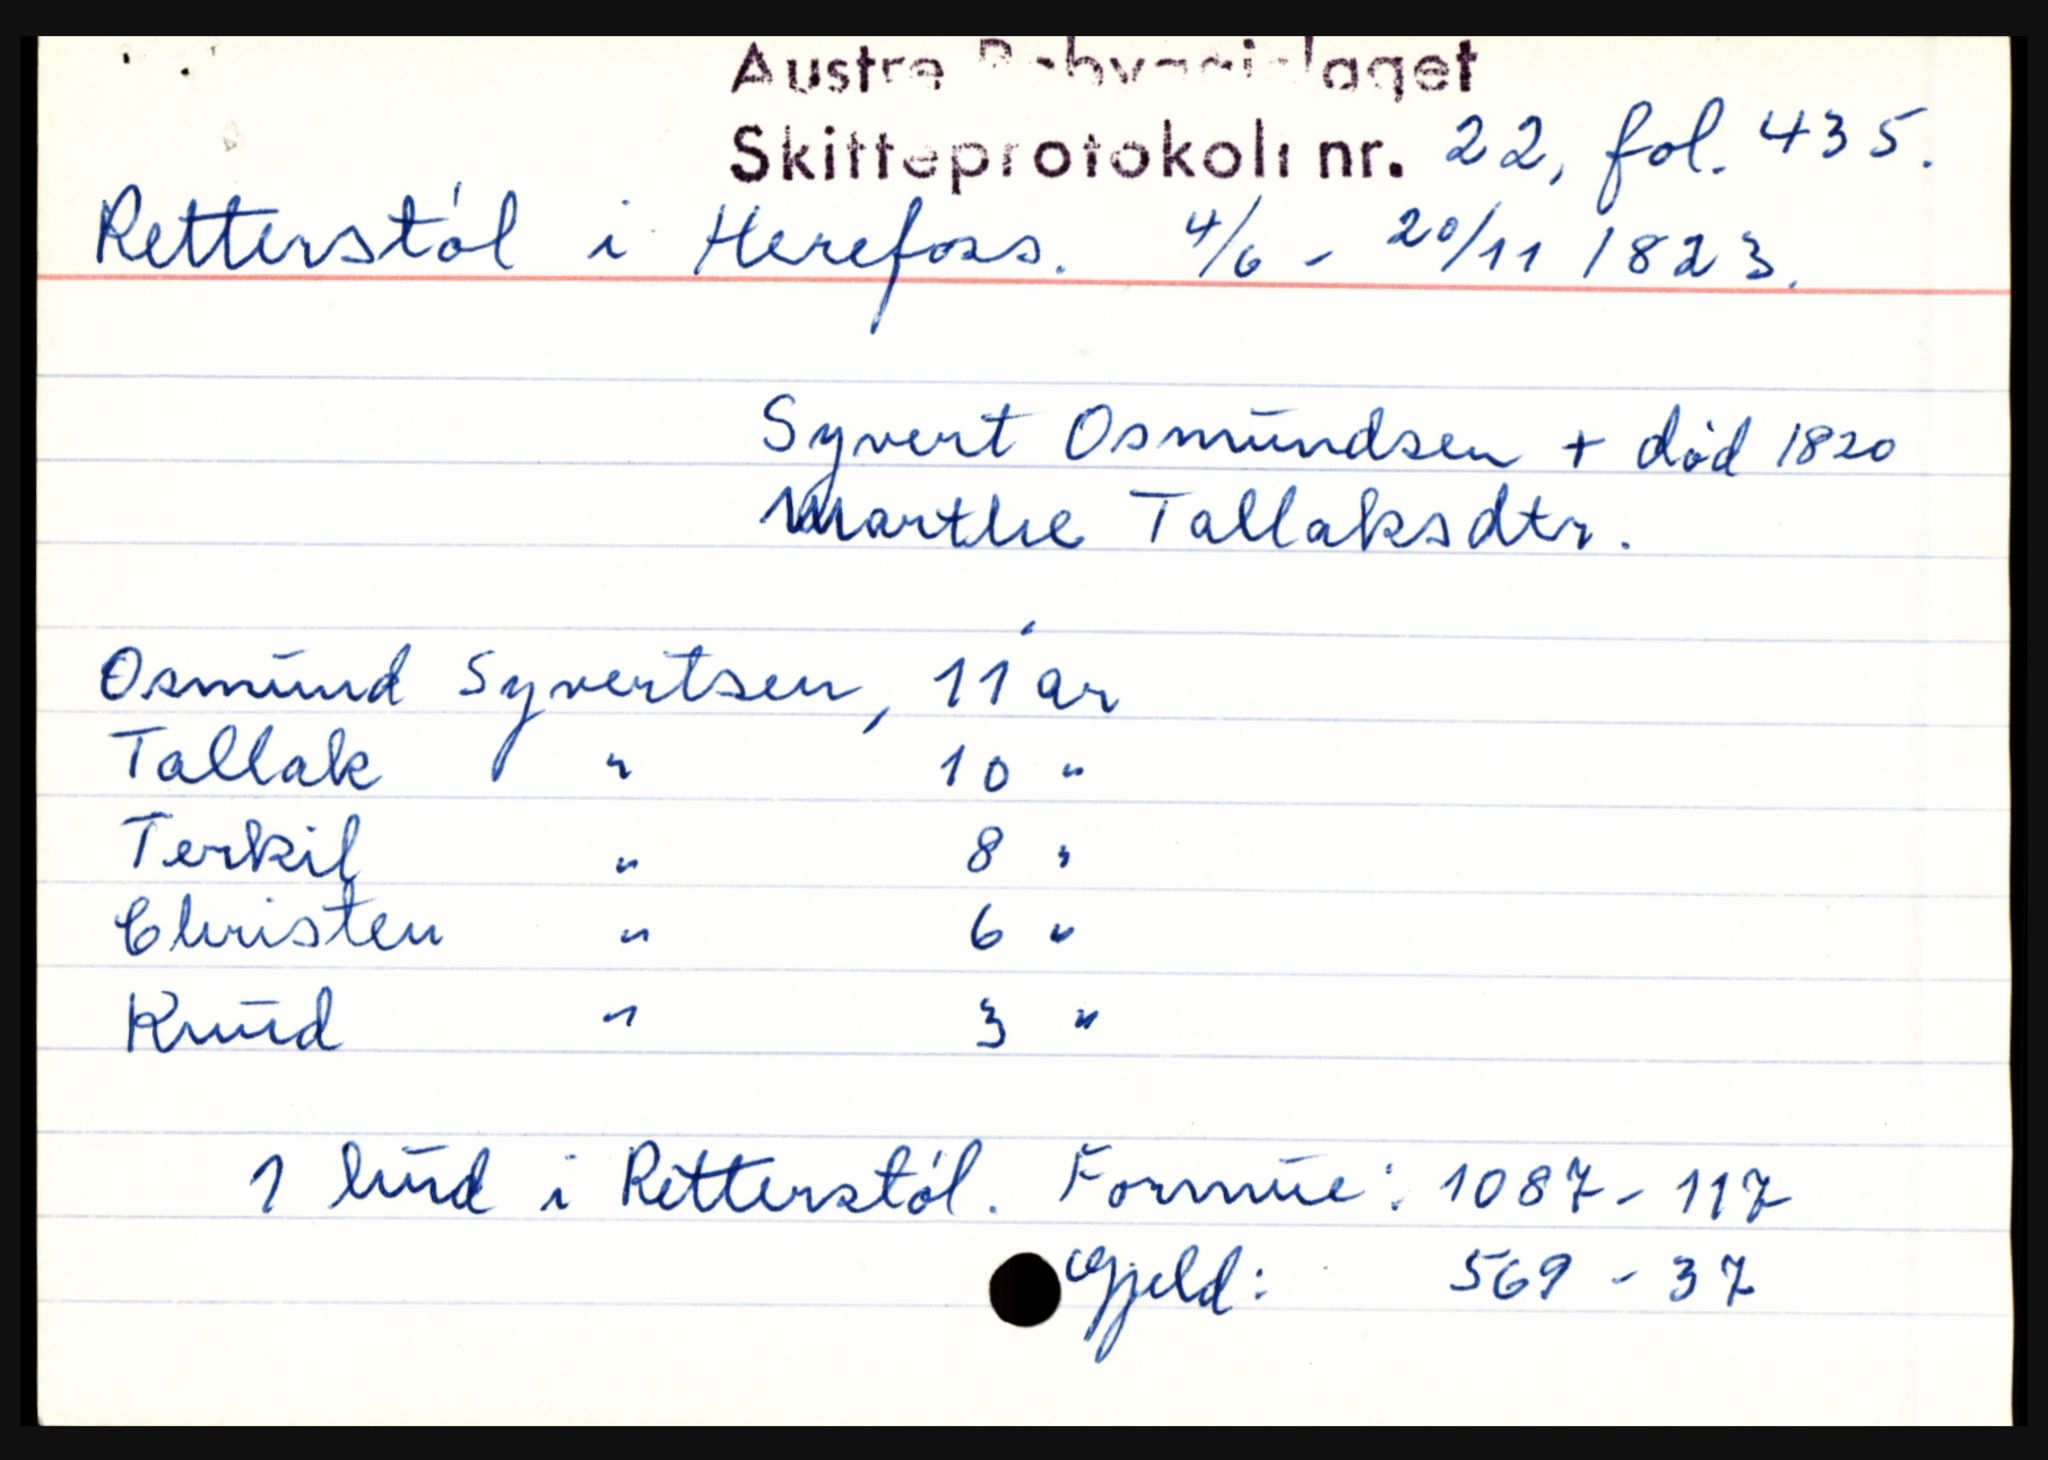 Austre Robyggjelaget
Skifteprotokoll nr. 22, fol. 435.
Retterstøl i Herefoss. 4/6 - 20/11 1823.
Syvert Osmundsen + død 1820
Marthe Tallaksdtr.
Osmund Syvertsen, 11 år
Tallak " 10 "
Terkil " 8 "
Christen " 6 "
Knud " 3 "
1 hud i Retterstøl. Formue: 1087 - 117
Gjeld: 569 - 37